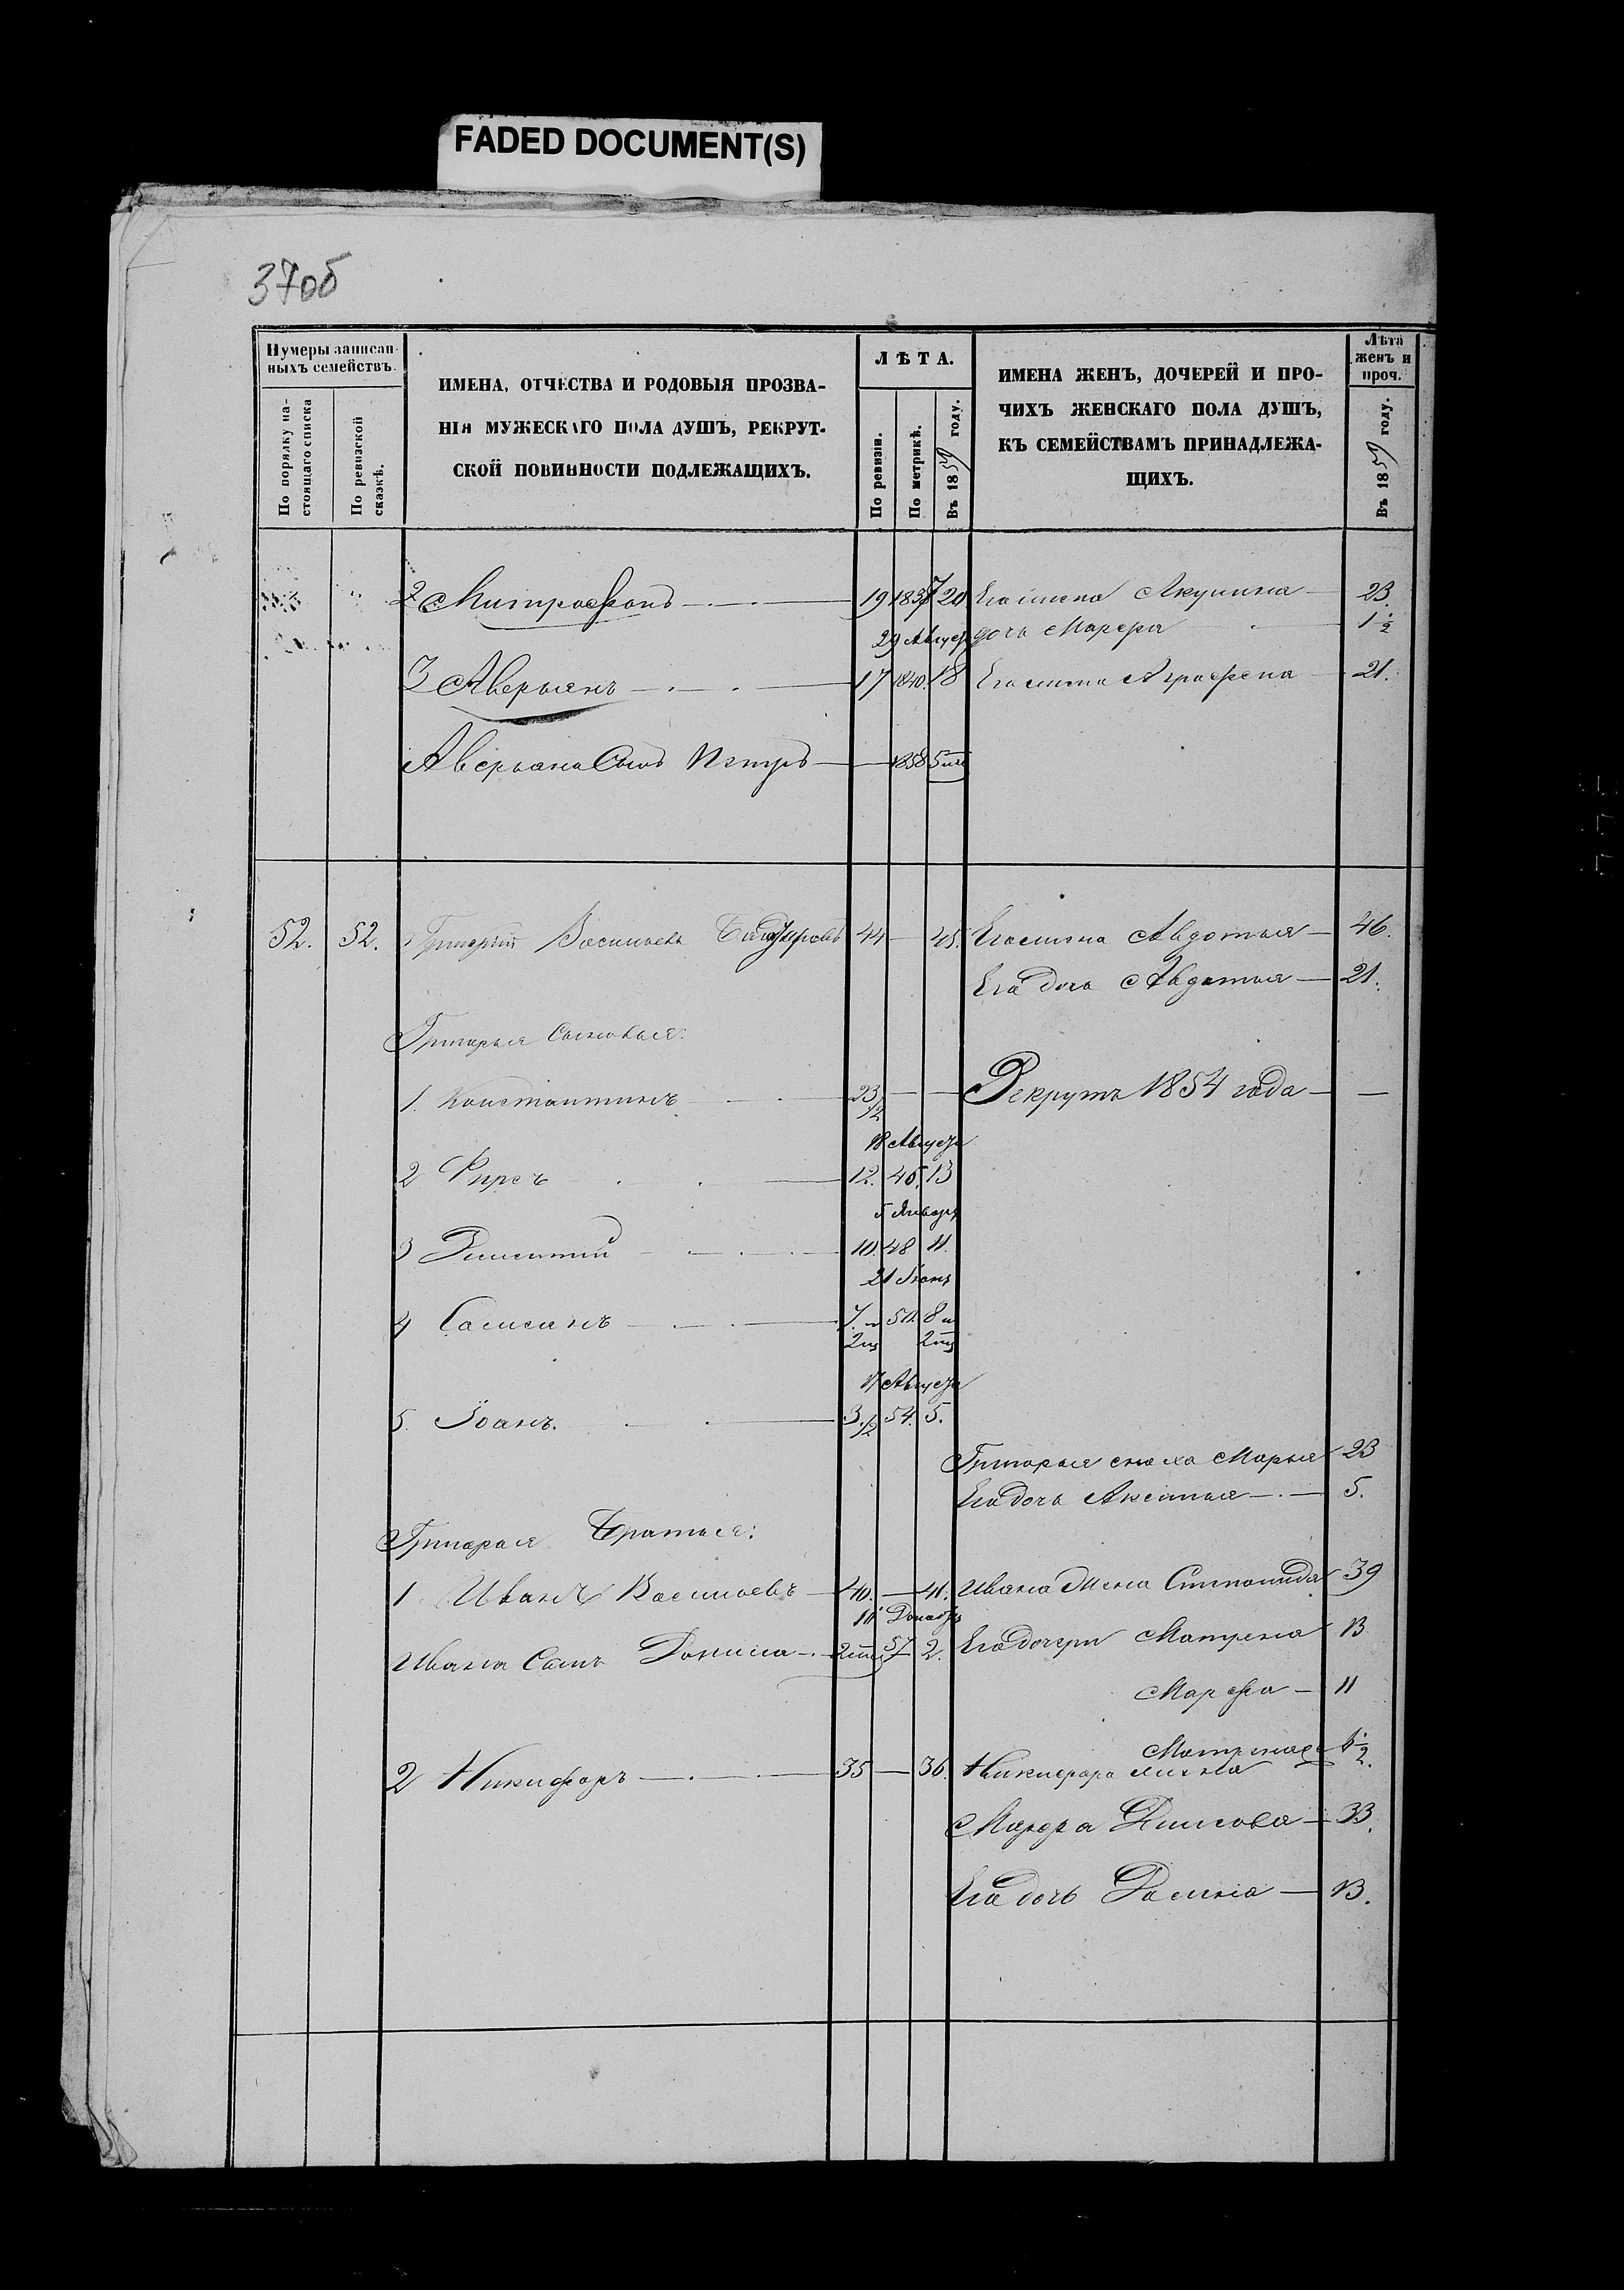 FADED DOCUMENT(S)
37об
Нумеры записан-
ныхъ семействъ.
По порядку на-
стоящаго списка
По ревизской
сказкѣ.
ИМЕНА, ОТЧЕСТВА И РОДОВЫЯ ПРОЗВА-
НІЯ МУЖЕСКАГО ПОЛА ДУШЪ, РЕКРУТ-
СКОЙ ПОВИННОСТИ ПОДЛЕЖАЩИХЪ.
ЛѢТА.
По ревизіи.
По метрикѣ.
Въ 1859 году.
ИМЕНА ЖЕНЪ, ДОЧЕРЕЙ И ПРО-
ЧИХЪ ЖЕНСКАГО ПОЛА ДУШЪ,
КЪ СЕМЕЙСТВАМЪ ПРИНАДЛЕЖА-
ЩИХЪ.
Лѣта
женъ и
проч.
Въ 1859 году.
2 Митрофанъ 19 1837 20 Его жена Акулина 23
дочь Марфа 1 1/2
29 Август
3 Аверьянъ 17 1840. 18 Его жена Аграфена 21.
Аверьяна Сынъ Петръ 1858 5 ме
52. 52. Григорій Васильевъ 44 45. Его жена Авдотья 46.
Его дочь Авдотья 21.
Григорья Сыновья:
1. Константинъ 23 1/2 Рекрутъ 1854 года
18 Августа
2 Фирсъ 12. 45. 13
5 Январ
3 10. 48 11.
21
4 7. и 50. 8 и
2 м 2 м
17 Августа
5. Іоанъ. 3. 1/2 54. 5.
Григорья сноха Марья 23
Его дочь Аксинья 5.
Григорья Братья:
1 Иванъ Васильевъ 40. 41. Ивана жена Степанида 39
Декабр
Ивана Сынъ Данила 2 м 57 2. Его дочери Матрена 13
Марфа 11
Матрена 1 1/2.
2 Никифоръ 35 36. Никифора жена
Марфа 33.
Его дочь Домна 13.